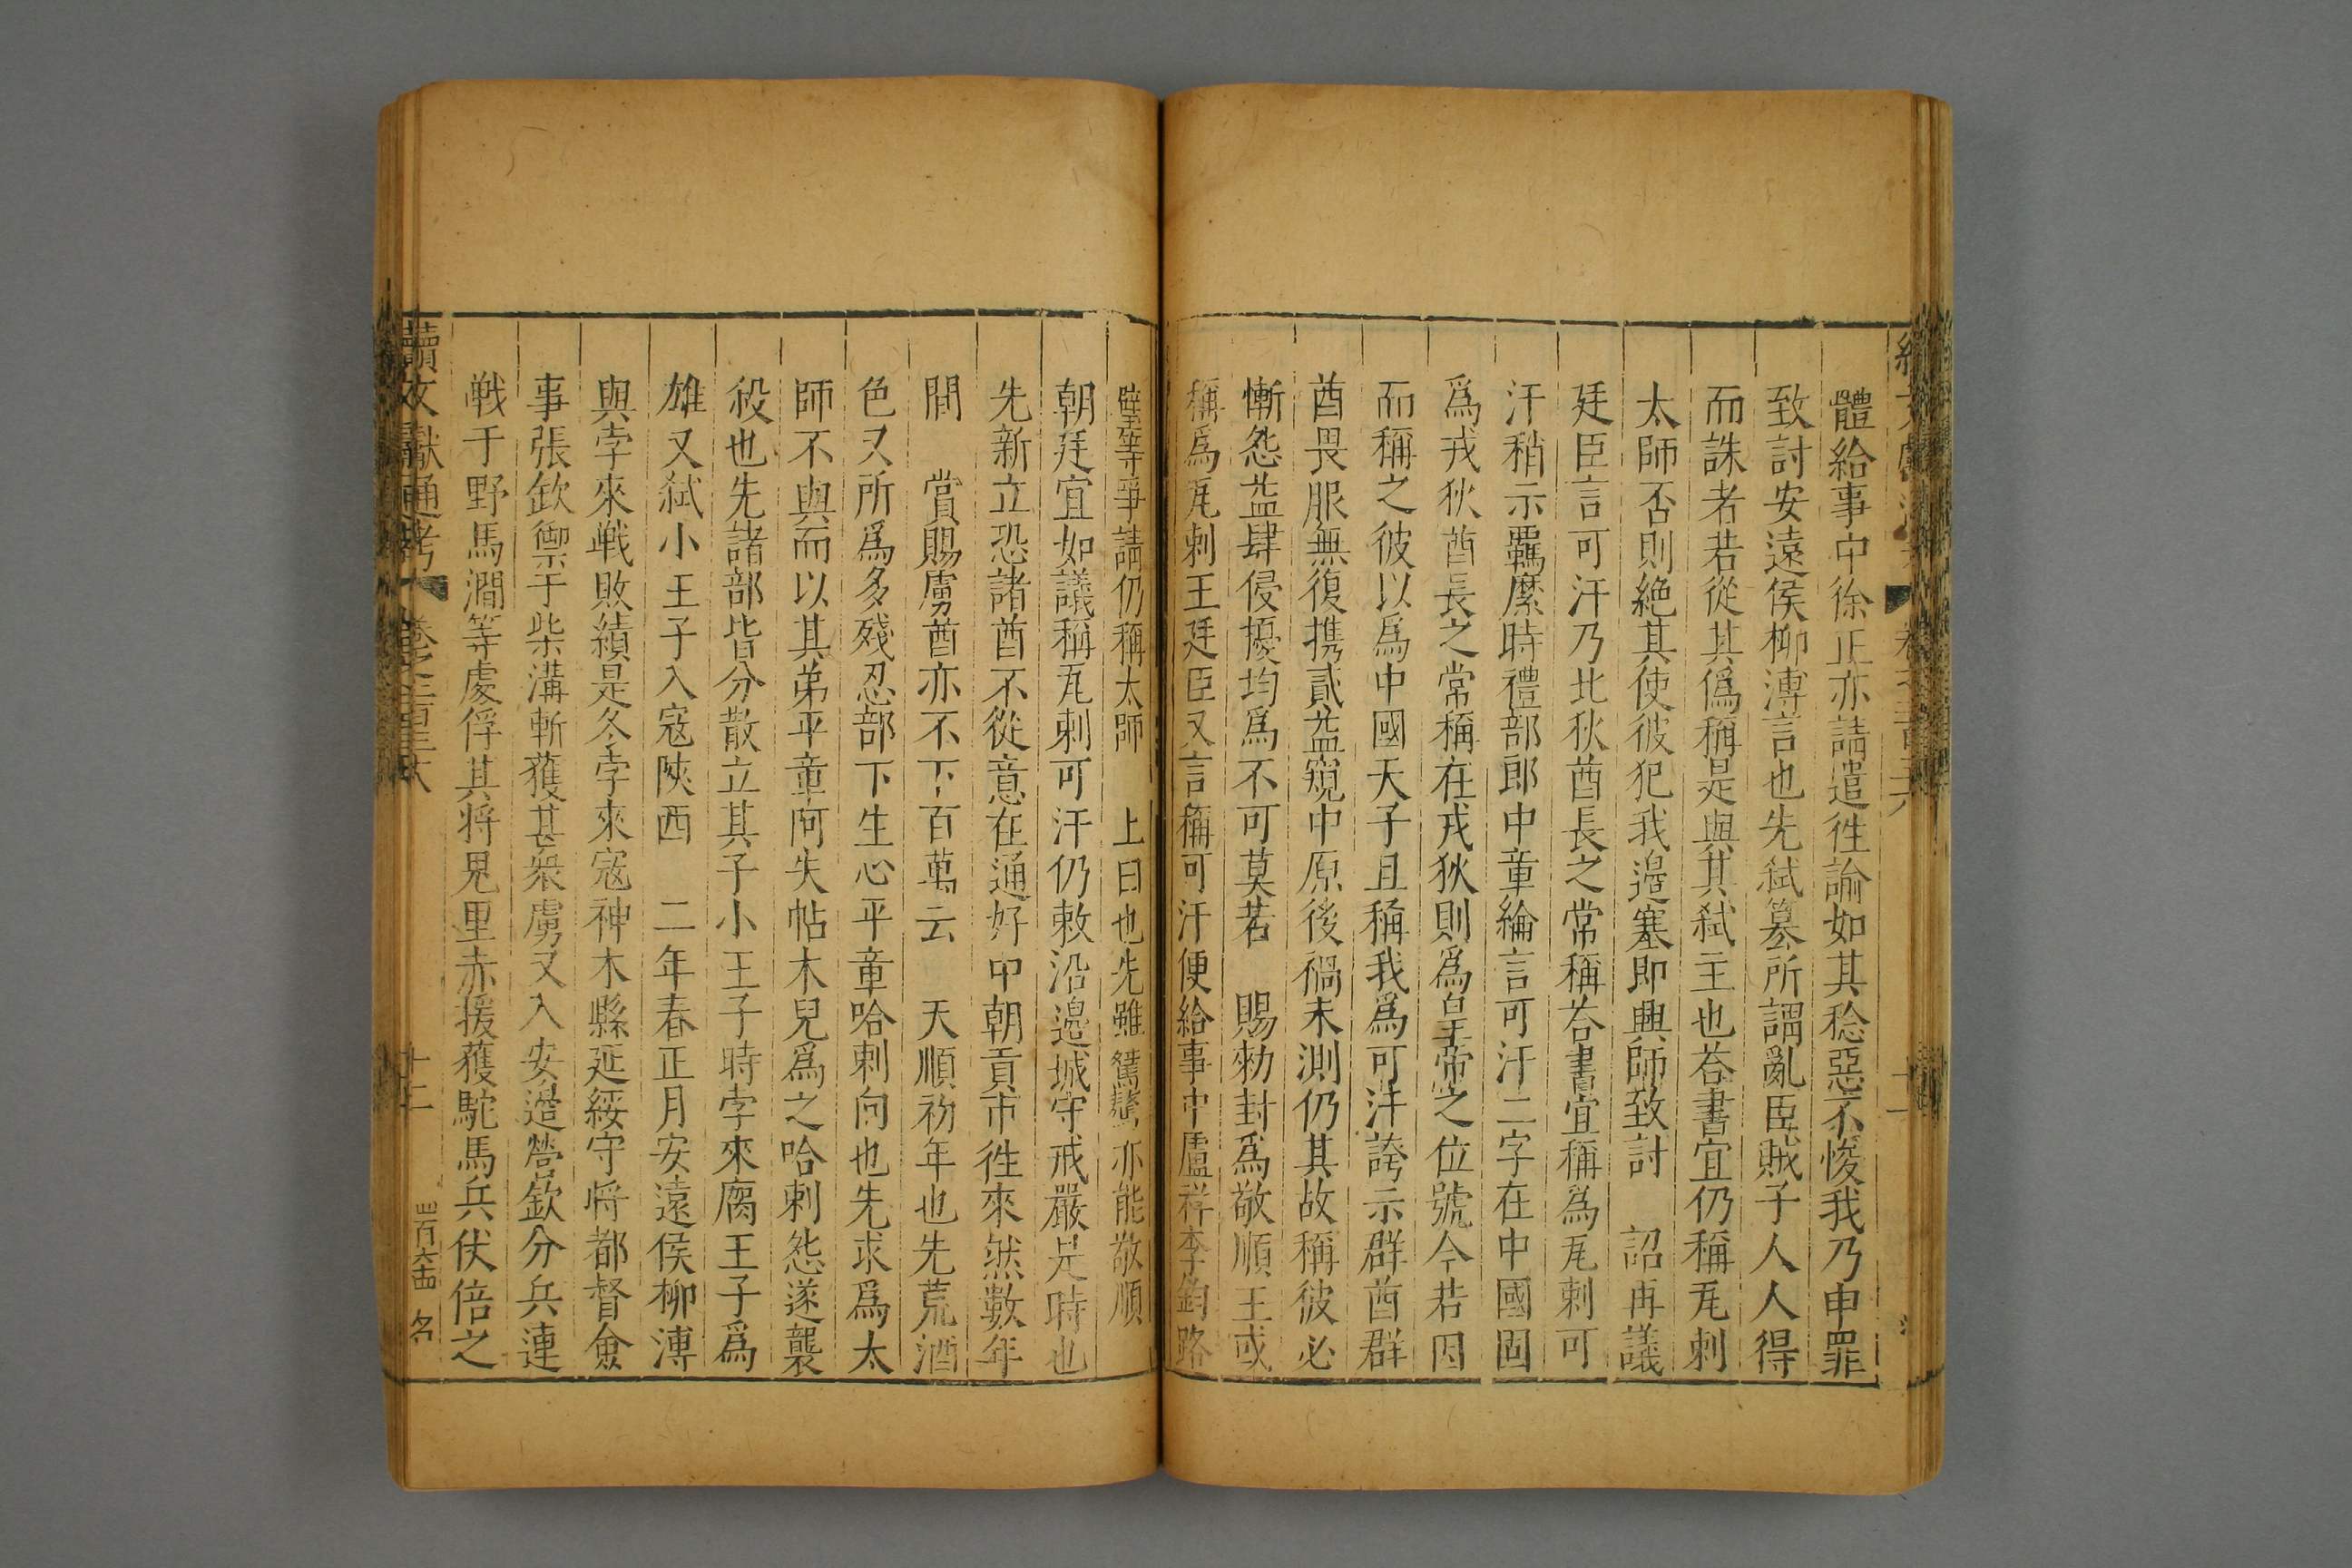 體給事中徐正亦請遣徃諭如其稔惡不悛我乃申罪
致討安遠侯柳溥言也先弑簒所謂亂臣賊子人人得
而誅者若從其僞稱是與其弑主也荅書宜仍稱瓦剌
太師否則絶其使彼犯我邉塞即興師致討 詔再議
廷臣言可汗乃北狄酋長之常稱荅書宜稱爲瓦剌可
汗稍示羈縻時禮部郎中章綸言可汗二字在中國固
爲戎狄酋長之常稱在戎狄則爲皇帝之位號今若因
而稱之彼以爲中國天子且稱我爲可汗誇示群酋群
酋畏服無復携貳益窺中原後禍未測仍其故稱彼必
慚怨益肆侵擾均爲不可莫若 賜勑封爲敬順王或
稱爲瓦剌王廷臣又言稱可汗便給事中盧祥李鈞路
壁等爭請仍稱太師 上曰也先雖鷔亦能敬順
朝廷宜如議稱瓦剌可汗仍敕沿邉城守戒嚴是時也
先新立恐諸酋不從意在通好中朝貢市徃來然數年
間 賞賜虜酋亦不下百萬云 天順初年也先荒酒
色又所爲多殘忍部下生心平章哈剌向也先求爲太
師不與而以其弟平章阿失帖木兒爲之哈剌怨遂襲
殺也先諸部皆分散立其子小王子時孛來腐王子爲
雄又弑小王子入寇陜西 二年春正月安遠侯柳溥
與孛來戰敗績是冬孛來寇神木縣延綏守將都督僉
事張欽禦于柴溝斬獲甚衆虜又入安邉營欽分兵連
戰于野馬澗等處俘其將晃里赤援獲駝馬兵仗倍之
續文獻通考 卷之二百三十八 十二